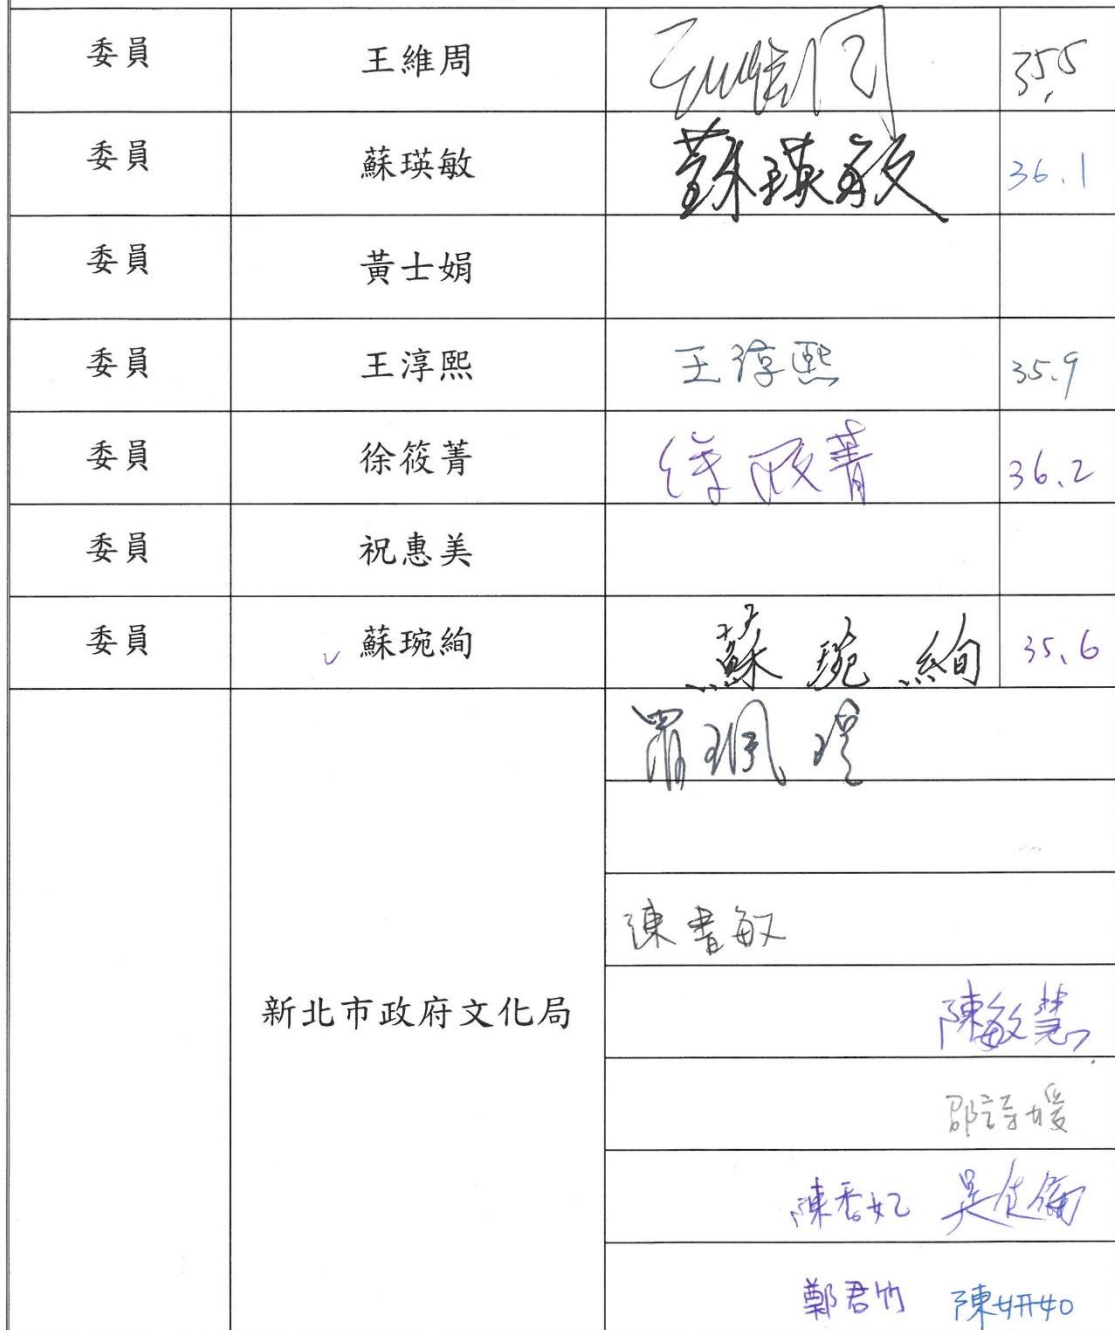 委員 王維周 王維周 35.5
委員 蘇瑛敏 蘇瑛敏 36.1
委員 黃士娟
委員 王淳熙 王淳熙 35.9
委員 徐筱菁 徐筱菁 36.2
委員 祝惠美
委員 ✓ 蘇琬絢 蘇琬絢 35.6
新北市政府文化局
陳書敏
陳敏慧
邵詩媛
陳香妃
鄭君竹 陳妍如